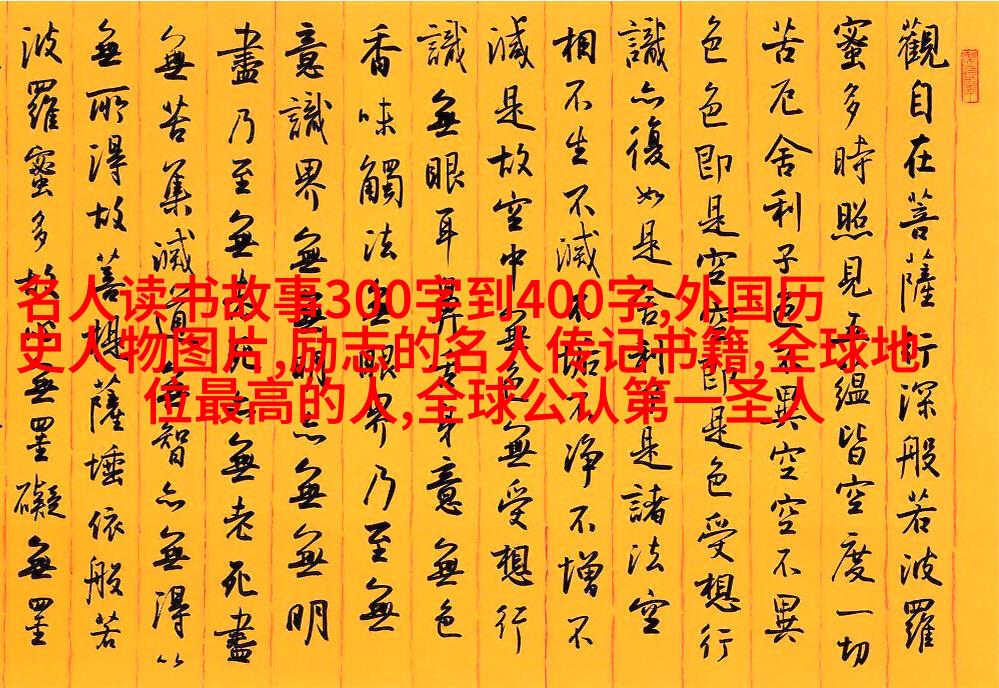 觀自在菩薩行深般若波羅
蜜多時照見五蘊皆空度一切
苦厄舍利子色不異空空不異
色色即是空空即是色受想行
識亦復如是舍利子是諸法空
相不生不滅不垢不淨不增不
減是故空中無色無受想行
識無眼耳鼻舌身意無色
香味觸法無眼界乃至無
意識界無無明亦無無明
盡乃至無老死亦無老死盡
無苦集滅道無智亦無得以
無所得故菩提薩埵依般若
波羅蜜多故心無罣礙無罣
名人读书故事300字到400字,外国历
史人物图片,励志的名人传记书籍,全球地
位最高的人,全球公认第一圣人